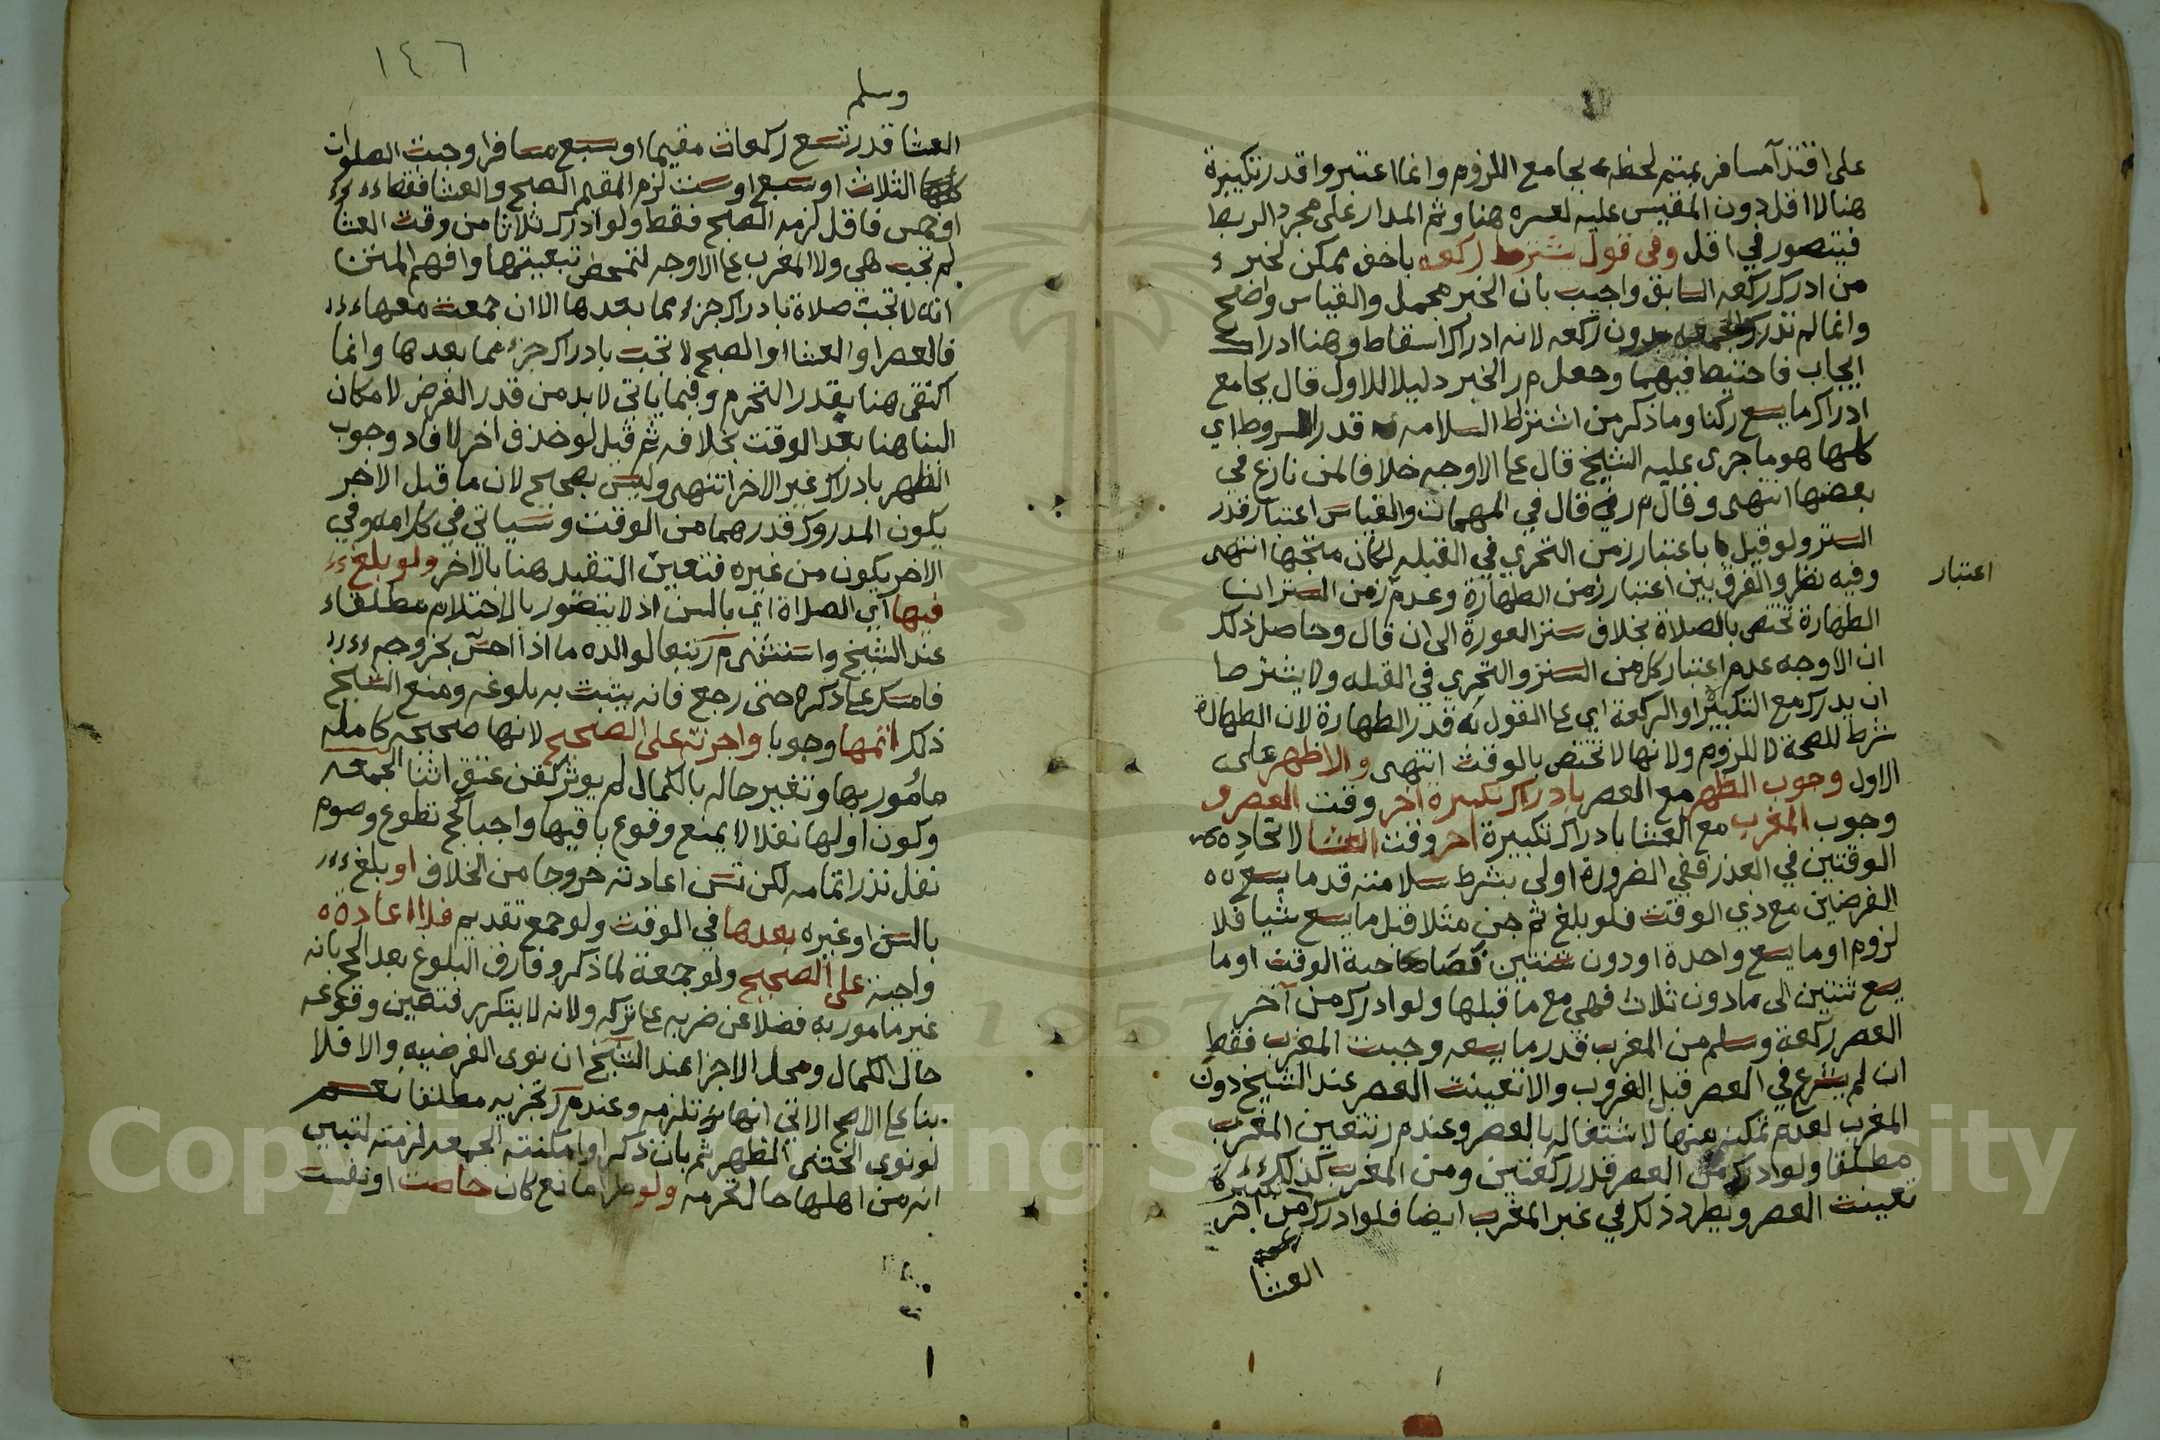 على اقتدآ مسافر بمتم لحظة بجامع اللزوم وانما اعتبروا قدر تكبيرة
هنا لا اقل دون المقيس عليه لعسره هنا وثم المدار على مجرد الربط
فيتصور في اقل وفى قول شترط ركعه باخف ممكن لخبر
من ادرك ركعه السابق واجيب بان الخبر محمل والقياس واضح
وانما لم تدرك الجمعه بدون ركعه لانه ادراك اسقاط وهنا ادراك
ايجاب فاحتيط فيهما وجعل م ر الخبر دليلا للاول قال بجامع
ادراك ما يسع ركنا وما ذكر من اشتراط السلامه قدر الشروط اي
كلها هو ما جرى عليه الشيخ قال عا الاوجه خلافا لمن نازع في
بعضها انتهى وقال م ر قال في المهمات والقياس اعتبار قدر
الستر ولو قيل باعتبار زمن التحري في القبله لكان متجها انتهى
وفيه نظر والفرق بين اعتبار زمن الطهارة وعدم زمن الستر ان
اعتبار
الطهارة تختص بالصلاة بخلاف ستر العورة الى ان قال وحاصل ذلك
ان الاوجه عدم اعتبار كل من الستر والتحري في القبله ولا يشترط
ان يدرك مع التكبير او الركعة اي عا القول به قدر الطهارة لان الطهارة
شرط للصحة لا للزوم ولانها لا تختص بالوقت انتهى والاظهر على
الاول وجوب الظهر مع العصر بادراك تكبيرة آخر وقت العصر و
وجوب المغرب مع العشا بادراك تكبيرة آخر وقت العشا لاتحاد
الوقتين في العذر ففي الضرورة اولى بشرط سلامته قدر ما يسع
الفرضين مع ذي الوقت فلو بلغ ثم جن مثلا قبل ما يسع شيا فلا
لزوم او ما يسع واحدة او دون ثنتين صاحبة الوقت او ما
يسع ثنتين الى ما دون ثلاث فهي مع ما قبلها ولو ادرك من آخر
العصر ركعة وسلم من المغرب قدر ما يسعه وجبت المغرب فقط
ان لم يشرع في العصر قبل الغروب والا تعينت العصر عند الشيخ دون
المغرب لعدم تمكنه منها لاشتغاله بالعصر وعند م ر تتعين المغرب
مطلقا ولو ادرك من العصر قدر ركعتين ومن المغرب كذلك
تعينت العصر ويطرد ذلك في غير المغرب ايضا فلو ادرك من آخر
العشا
١٤٦
وسلم
العشا قدر تسع ركعات مقيما او سبع مسافرا وجبت الصلوات
الثلاث او سبع او ست لزم المقيم الصبح والعشا فقط
او خمس فاقل لزمه الصبح فقط ولو ادرك ثلاثا من وقت العشا
لم تجب هي ولا المغرب عا الاوجه لتمحض تبعيتها وافهم المتن
انه لا تجب صلاة بادراك جزء مما بعدها الا ان جمعت معها
فالعصر او العشا او الصبح لا تجب بادراك جزء مما بعدها وانما
اكتفى هنا بقدر التحرم وفيما ياتي لا بد من قدر الفرض لامكان
البنا هنا بعد الوقت بخلافه ثم قيل لو حذف اخر لافاد وجوب
الظهر بادراك غير الاخر انتهى وليس بصحيح لان ما قبل الاخر
يكون المدرك قدرهما من الوقت وسياتي في كلامه وفي
الاخر يكون من غيره فتعين التقيد هنا بالاخر ولو بلغ
فيها اي الصلاة اي بالسن اذ لا يتصور بالاحتلام مطلقا
عند الشيخ واستثنى م ر تبعا لوالده ما اذا احس بخروجه
فامسك عا ذكره حتى رجع فانه يثبت به بلوغه ومنع الشيخ
ذلك اتمها وجوبا واجزته على الصحيح لانها صحيحه كامله
مأمور بها وتغير حاله بالكمال لم يوثر كقن عتق اثنا الجمعه
وكون اولها نفلا لا يمنع وقوع باقيها واجبا كحج تطوع وصوم
نفل نذر اتمامه لكن تسن اعادته خروجا من الخلاف او بلغ
بالسن او غيره بعدها في الوقت ولو جمع تقديم فلا اعادة
واجبة على الصحيح ولو جمعة لما ذكر وفارق البلوغ بعد الحج بانه
غير مامور به فضلا عن ضربه عا تركه ولانه لا يتكرر فتعين وقوعه
حال الكمال ومحل الاجزا عند الشيخ ان نوى الفرضيه والا فلا
بنا عا الاصح الاتي انها تلزمه وعند م ر تجزيه مطلقا نعم
لو نوى الخنثى الظهر ثم بان ذكرا وامكنته الجمعه لزمته لتبين
انه من اهلها حال تحرمه ولو طرا مانع كان حاضت او نفست
Copyright © King Saud University
1957